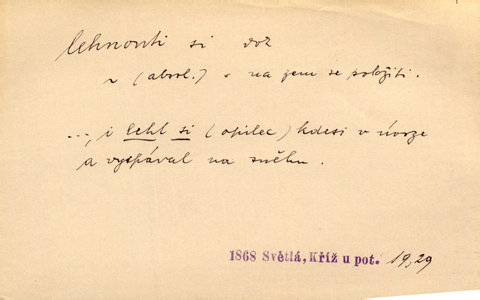 lehnouti si doz
~ (absol.) = na zem se položiti.
..., i lehl si (opilec) kdesi v úvoze
a vyspával na sněhu.
1868 Světlá, Kříž u pot. 19,29